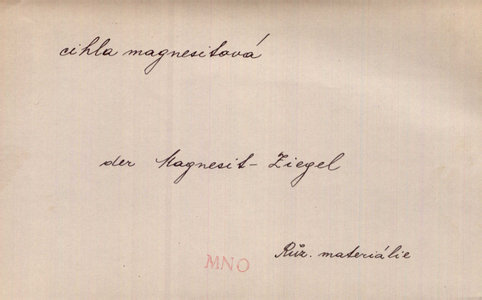 cihla magnesitová
der Magnesit-Ziegel
Růz. materiálie
MNO